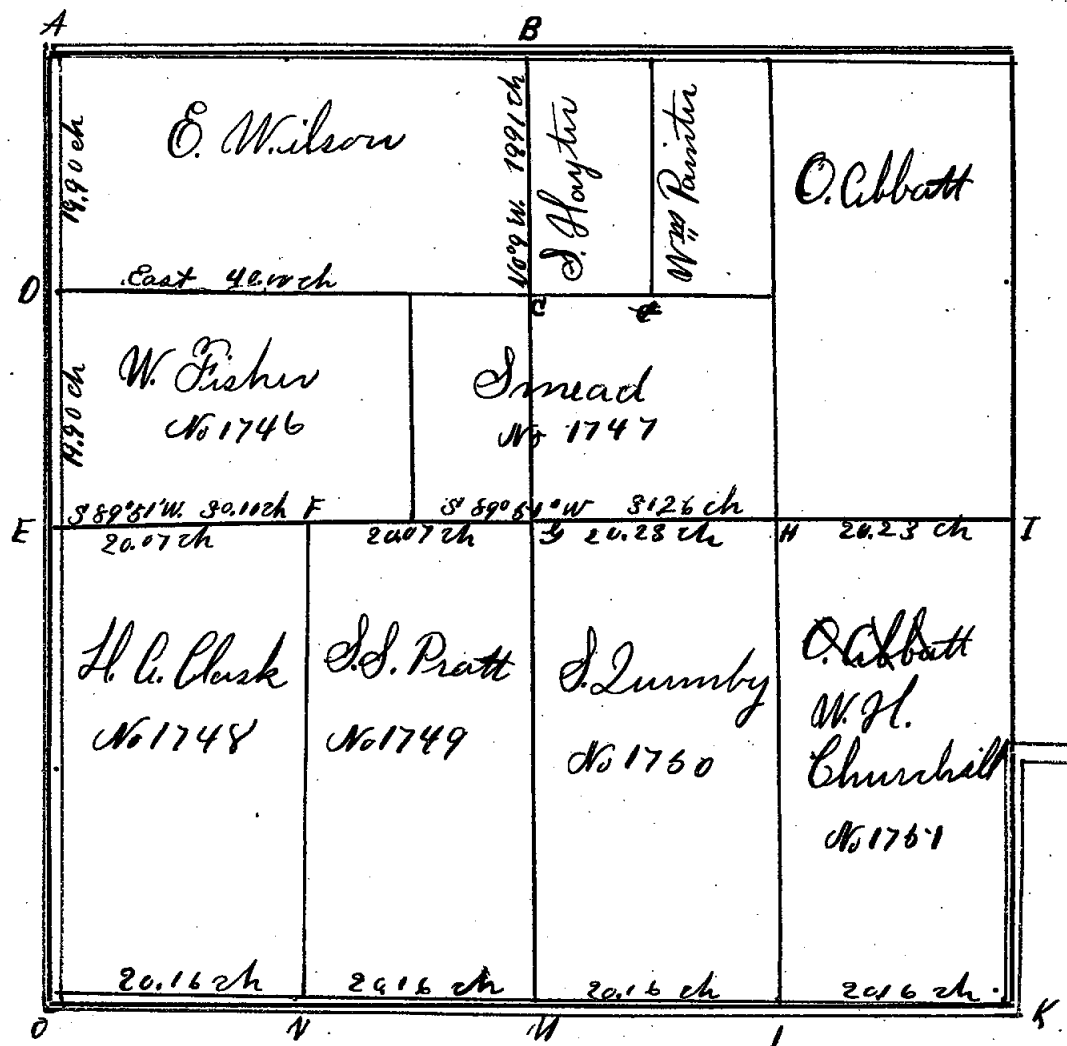 A
B
19.90 ch
E. Wilson
N0°9 W. 1991 ch
S. Hayter
Wm Painter
O. Abbott
D
East 40.00 ch
C
W. Fisher
No 1746
19.90 ch
Smead
No 1747
E
S 89°51'W. 30.11 ch F
S 89°51'W 31.26 ch
20.07 ch
20.07 ch
G
20.23 ch
H
20.23 ch
I
H. A. Clark
No 1748
S.S. Pratt
No 1749
S. Quimby
No 1750
O. Abbott
W. H.
Churchill
No 1751
20.16 ch
20.16 ch
20.16 ch
20.16 ch
O
N
M
L
K